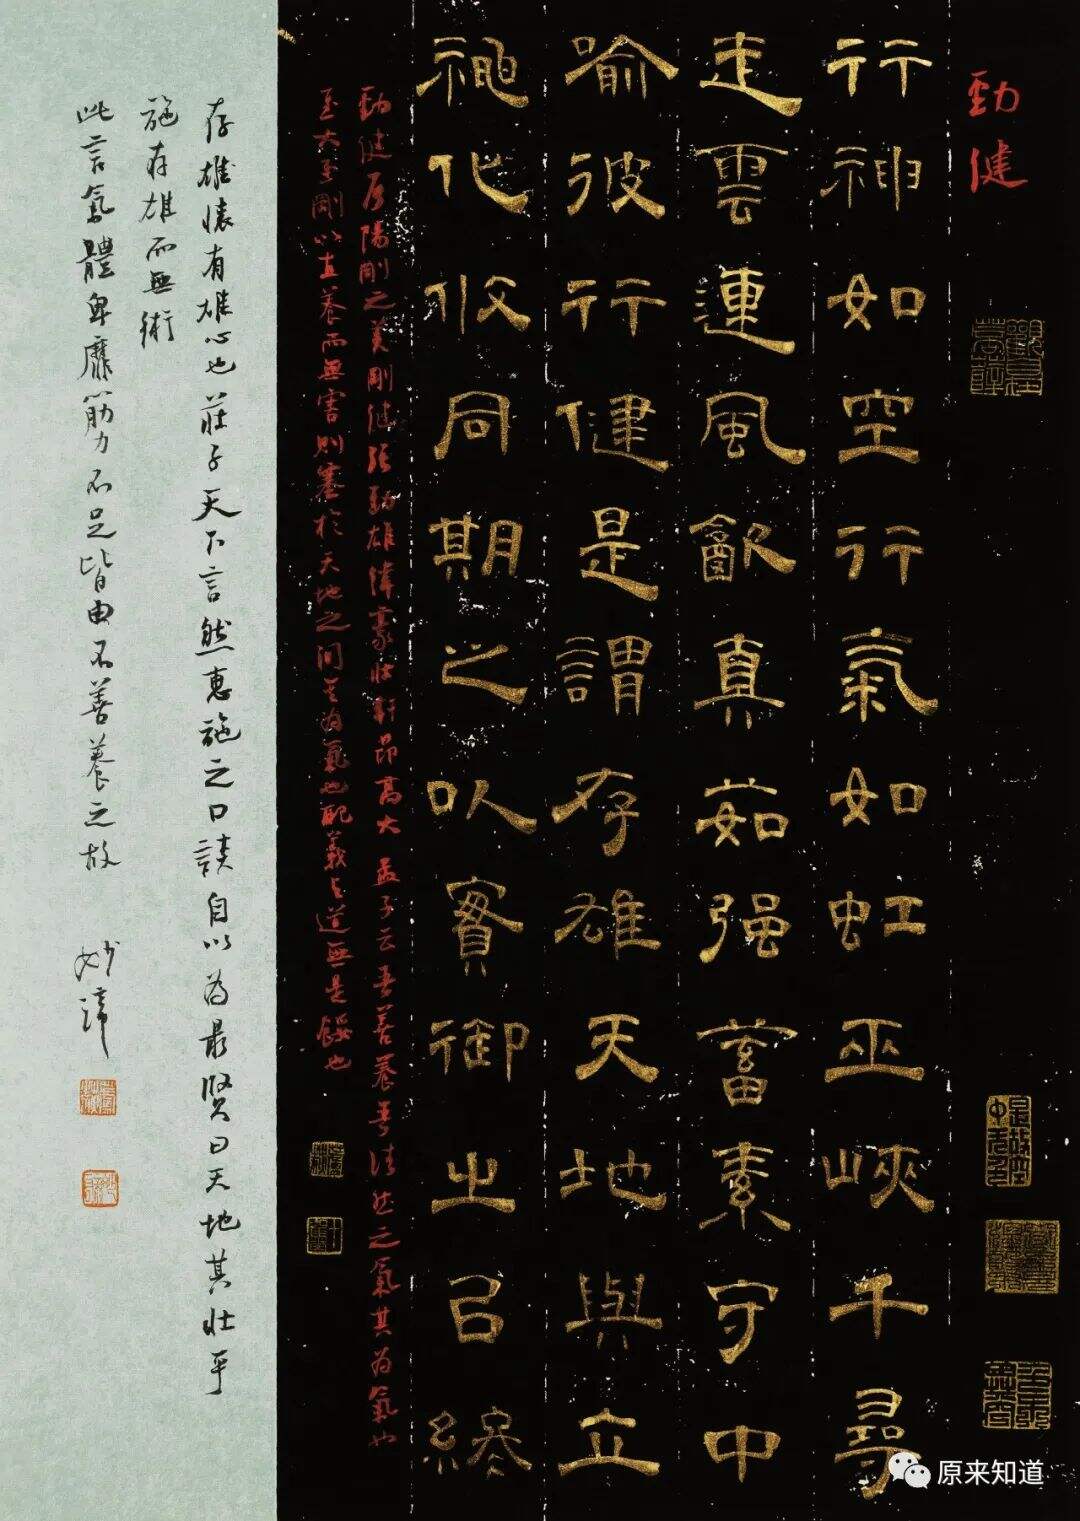 勁健
行神如空行氣如虹巫峽千尋
走雲連風飲真茹强蓄素守中
喻彼行健是謂存雄天地與立
神化攸同期之以實御之以終
勁健居陽剛之美剛健强勁雄偉豪壯軒昂高大孟子云吾善養吾浩然之氣其為氣也
至大至剛以直養而無害則塞於天地之间其為氣也配義与道無是餒也
存雄懷有雄心也莊子天下言然惠施之口談自以為最賢曰天地其壯乎
施存雄而無術
此言氣體卑靡筋力不足皆由不善養之故
妙諦
原来知道